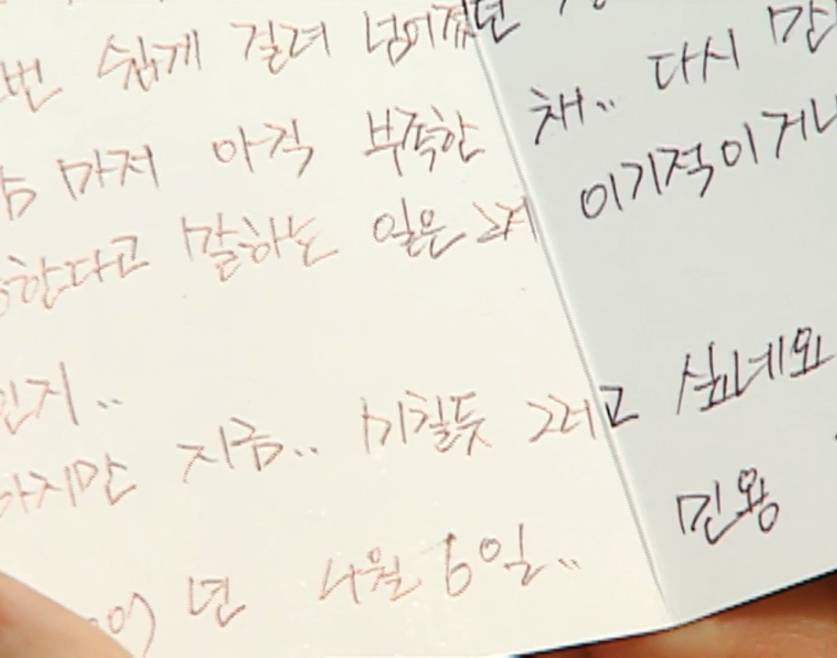 번 쉽게 걸려 넘어졌던
마저 아직 부족한 채.. 다시 만
한다고 말하는 일은 이기적이거나
인지..
하지만 지금.. 미칠듯 그러고 싶네요
09 년 4월 6일.. 민용